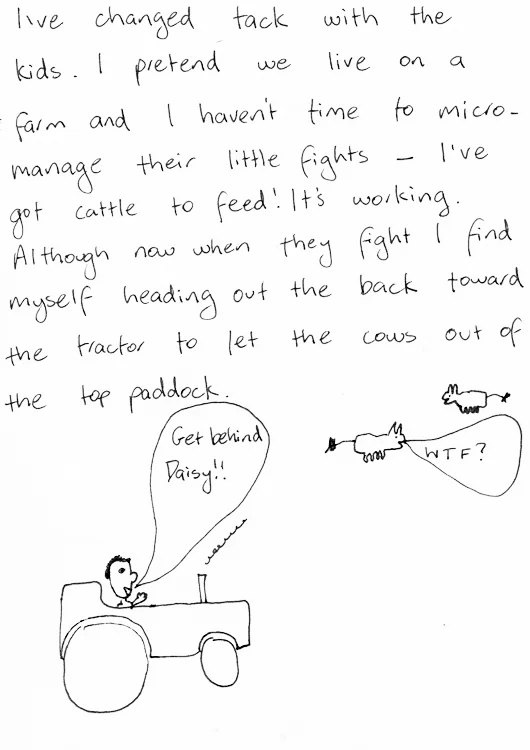 I've changed tack with the
kids. I pretend we live on a
farm and I haven't time to micro-
manage their little fights – I've
got cattle to feed! It's working.
Although now when they fight I find
myself heading out the back toward
the tractor to let the cows out of
the top paddock.
Get behind
Daisy!!
WTF?